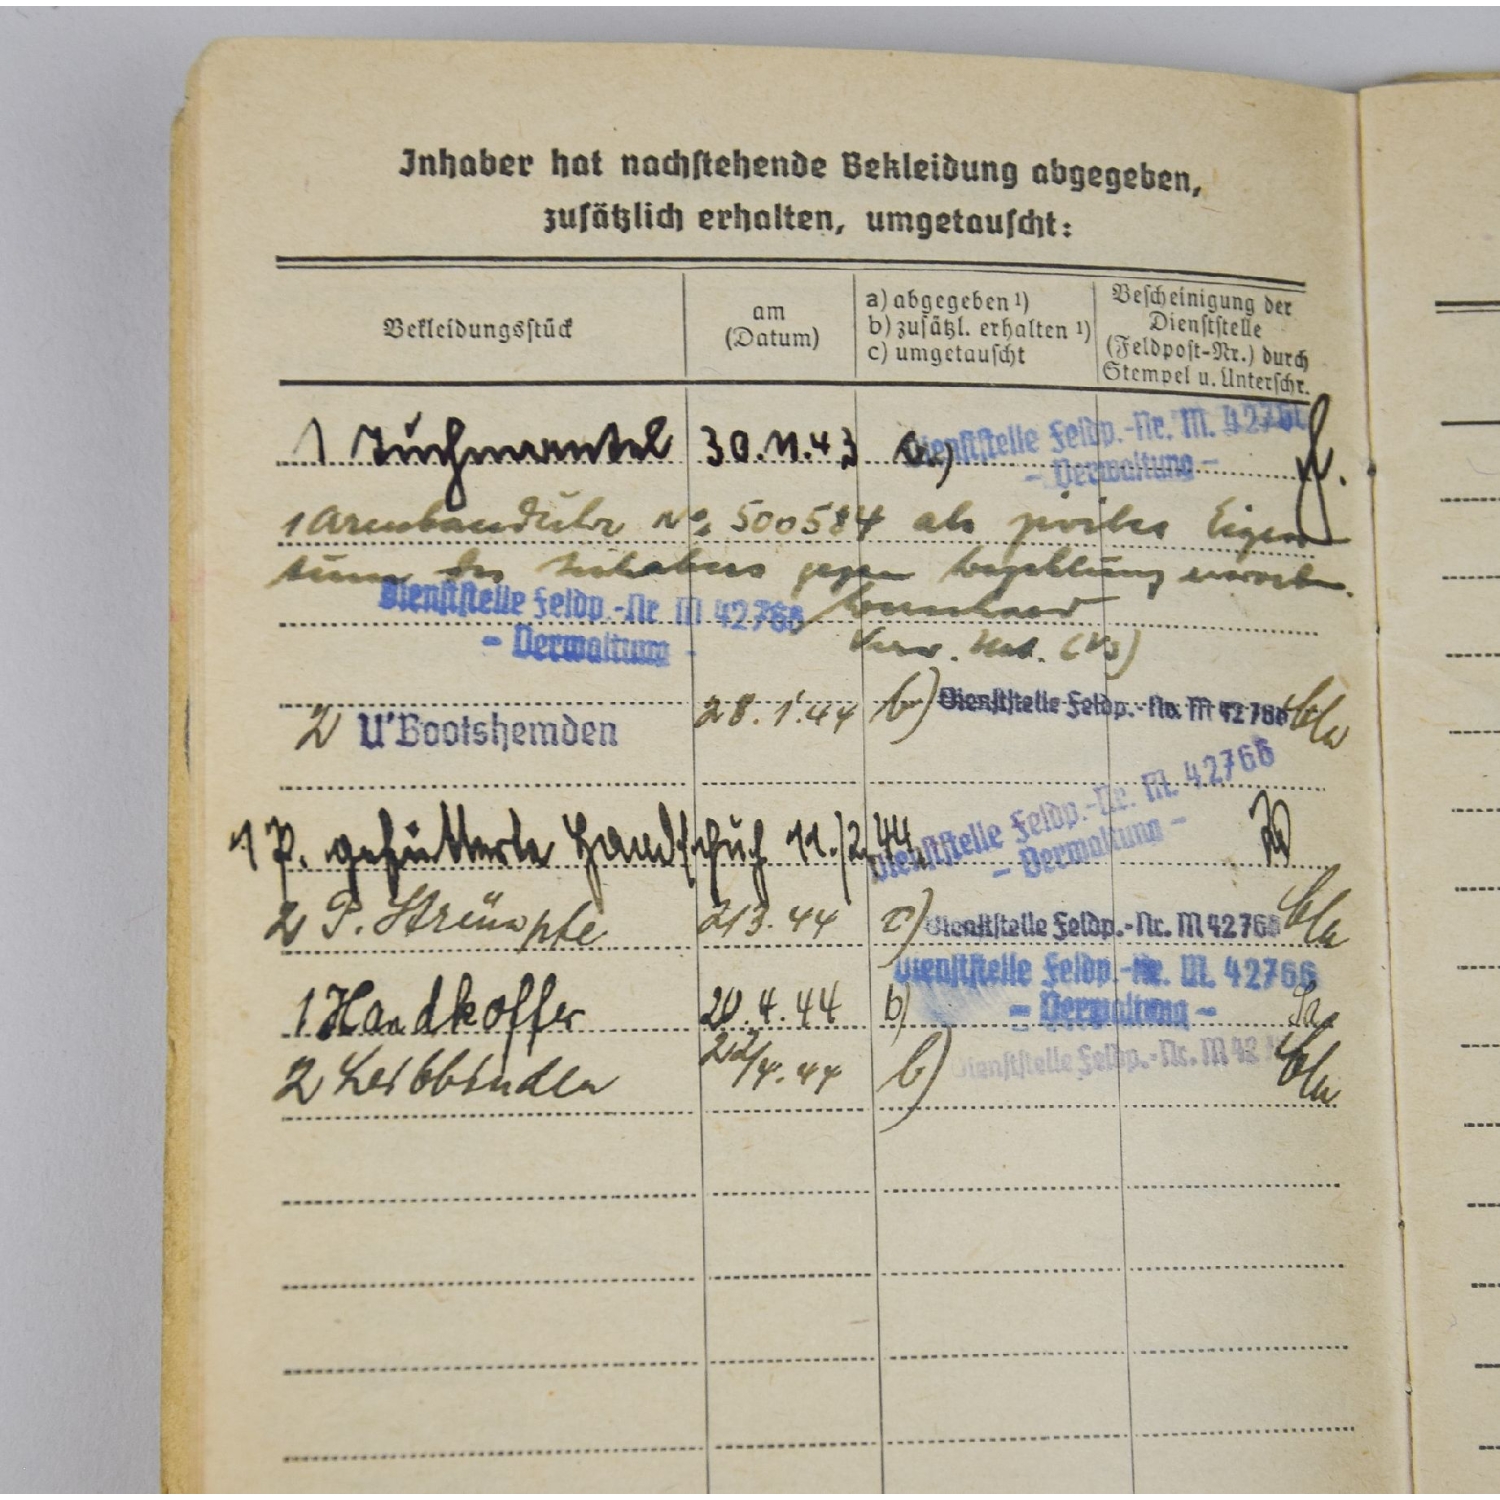 Inhaber hat nachstehende Bekleidung abgegeben,
zusätzlich erhalten, umgetauscht:
Bekleidungsstück
am
(Datum)
a) abgegeben 1)
b) zusätzl. erhalten 1)
c) umgetauscht
Bescheinigung der
Dienststelle
(Feldpost-Nr.) durch
Stempel u. Unterschr.
1 Tuchmantel 30.11.43 a) Dienststelle Feldp.-Nr. M. 42766
- Verwaltung -
1 Armbanduhr No. 500584 als privates Eigen
tum des Inhabers gegen Bezahlung erworben.
Dienststelle Feldp.-Nr M 42766
- Verwaltung -
2 U'Bootshemden 28.1.44 b) Dienststelle Feldp.-Nr. M 42766
1 P. gefütterte Handschuh 11./2.44. Dienststelle Feldp.-Nr. M. 42766
- Verwaltung -
2 P. Strümpfe 2/3.44 c) Dienststelle Feldp.-Nr. M 42766
Dienststelle Feldp.-Nr. M. 42766
1 Handkoffer 20.4.44 b) - Verwaltung -
2 Leibbinden 22/4.44 b) Dienststelle Feldp.-Nr. M 42